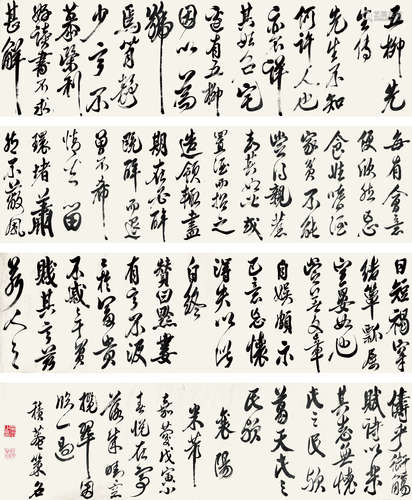 五柳先
生傳
先生不知
何許人也
亦不詳
其姓字宅
邊有五柳
因以為
號
焉閑靜
少言不
慕榮利
好讀書不求
甚解
每有會意
便欣然忘
食性嗜酒
家貧不能
常得親舊
知其如此或
置酒而招之
造飲輒盡
期在必醉
既醉而退
曾不吝
情去留
環堵蕭
然不蔽風
日短褐穿
結簞瓢屢
空晏如也
常著文章
自娛頗示
己志忘懷
得失以此
自終
贊曰黔婁
有言不汲
々於富貴
不戚々于貧
賤其言茲
若人之
儔乎銜觴
賦詩以樂
其志無懷
氏之民歟
葛天氏之
民歟
襄陽
米芾
嘉慶戊寅小
春
落成時
攬翠
臨一過